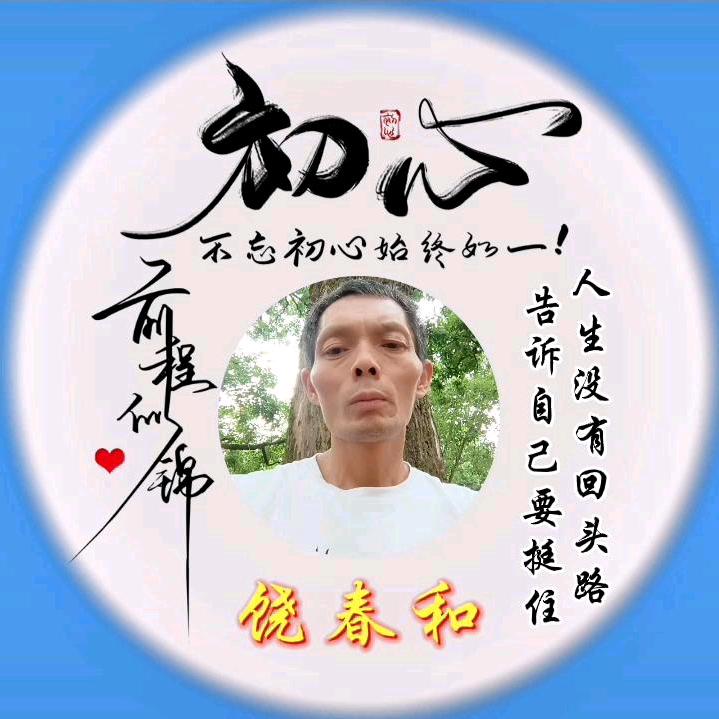 初心
不忘初心始终如一!
前程似锦
人生没有回头路
告诉自己要挺住
饶春和